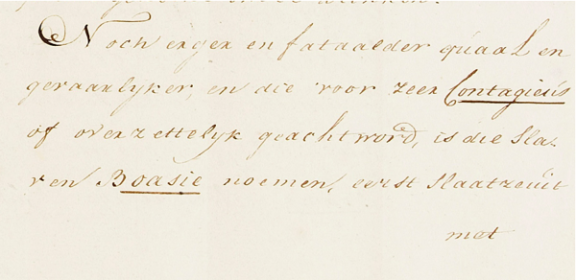 Noch erger en fataalder quaal en
gevaarlyker, en die voor zeer Contagieús
of overzettelyk geacht word, is die Sla-
ven Boasie noemen, eerst slaat ze uit
met